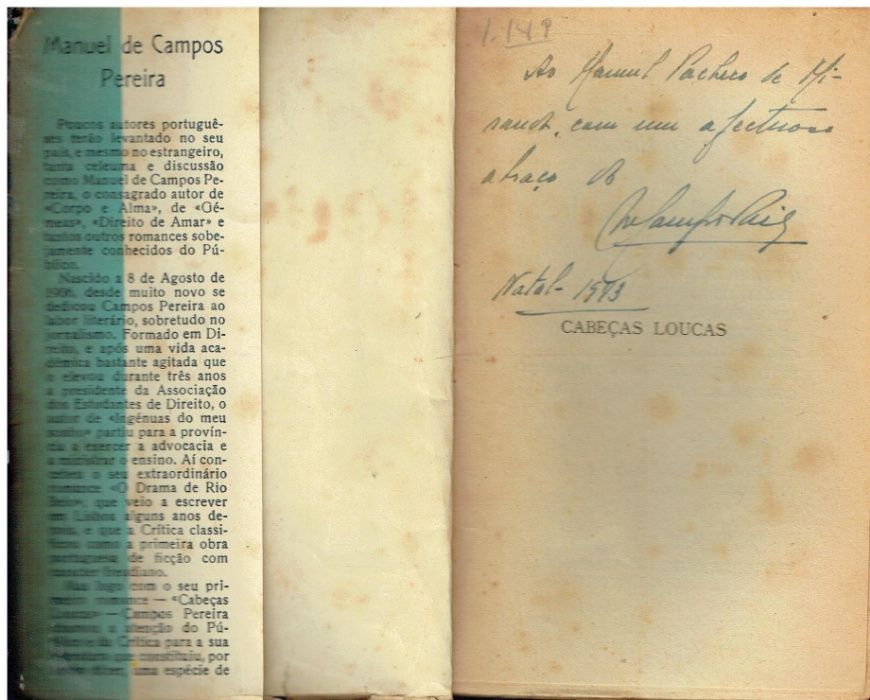 Manuel de Campos
Pereira
Poucos autores portuguê-
ses terão levantado no seu
país, e mesmo no estrangeiro,
tanta celeuma e discussão
como Manuel de Campos Pe-
reira, o consagrado autor de
«Corpo e Alma», de «Gé-
meas», «Direito de Amar» e
tantos outros romances sobe-
jamente conhecidos do Pú-
blico.
Nascido a 8 de Agosto de
1906, desde muito novo se
dedicou Campos Pereira ao
labor literário, sobretudo no
jornalismo. Formado em Di-
reito, e após uma vida aca-
démica bastante agitada que
o elevou durante três anos
a presidente da Associação
dos Estudantes de Direito, o
autor de «Ingénuas do meu
sonho» partiu para a provín-
cia a exercer a advocacia e
a ministrar o ensino. Aí con-
cebeu o seu extraordinário
romance «O Drama de Rio
que veio a escrever
em Lisboa alguns anos de-
pois, e que a Crítica classi-
ficou como a primeira obra
portuguesa de ficção com
carácter freudiano.
Mas logo com o seu pri-
meiro romance — «Cabeças
Loucas» — Campos Pereira
chamou a atenção do Pú-
blico e da Crítica para a sua
que constituiu, por
assim dizer, uma espécie de
1.149
Ao Manuel Pacheco de Mi-
randa, com um afectuoso
abraço do
Natal - 1943
CABEÇAS LOUCAS